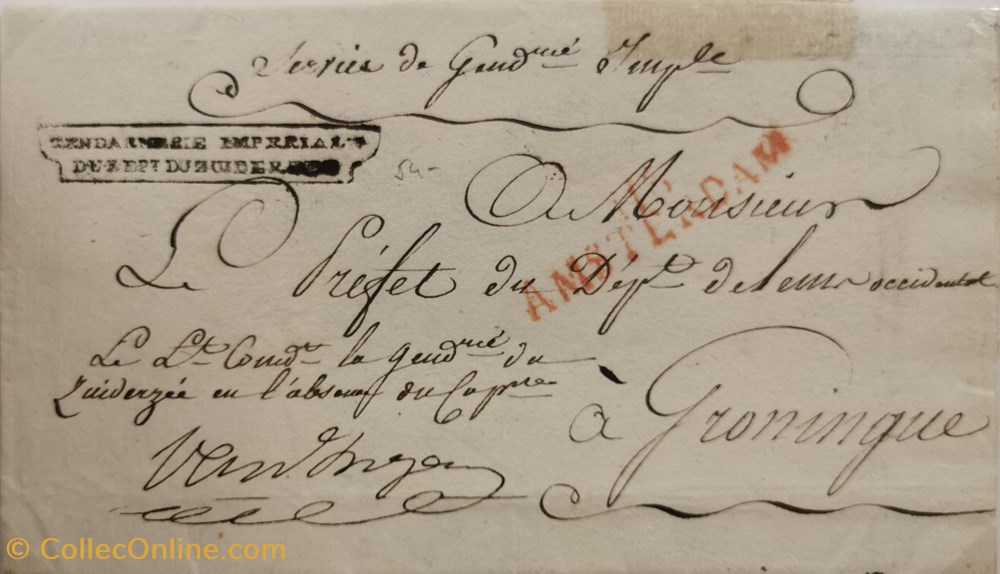 Service de Gend.rie Imp.le
GENDARMERIE IMPERIALE
DU DEP.T DU ZUIDER
54-
A Monsieur
AMSTERDAM
Le Préfet du Dép.t de l'ems occidental
Le L.t Comd.t la Gend.rie du
Zuiderzée en l'absence du Cap.ne
à Groningue
© CollecOnline.com